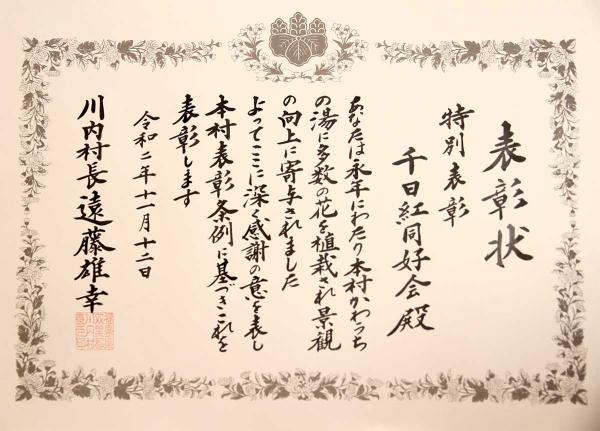 表彰状
特別表彰
千日紅同好会殿
あなたは永年にわたり本村かわうち
の湯に多数の花を植栽され景観
の向上に寄与されました
よってここに深く感謝の意を表し
本村表彰条例に基づきこれを
表彰します
令和二年十一月十二日
川内村長遠藤雄幸